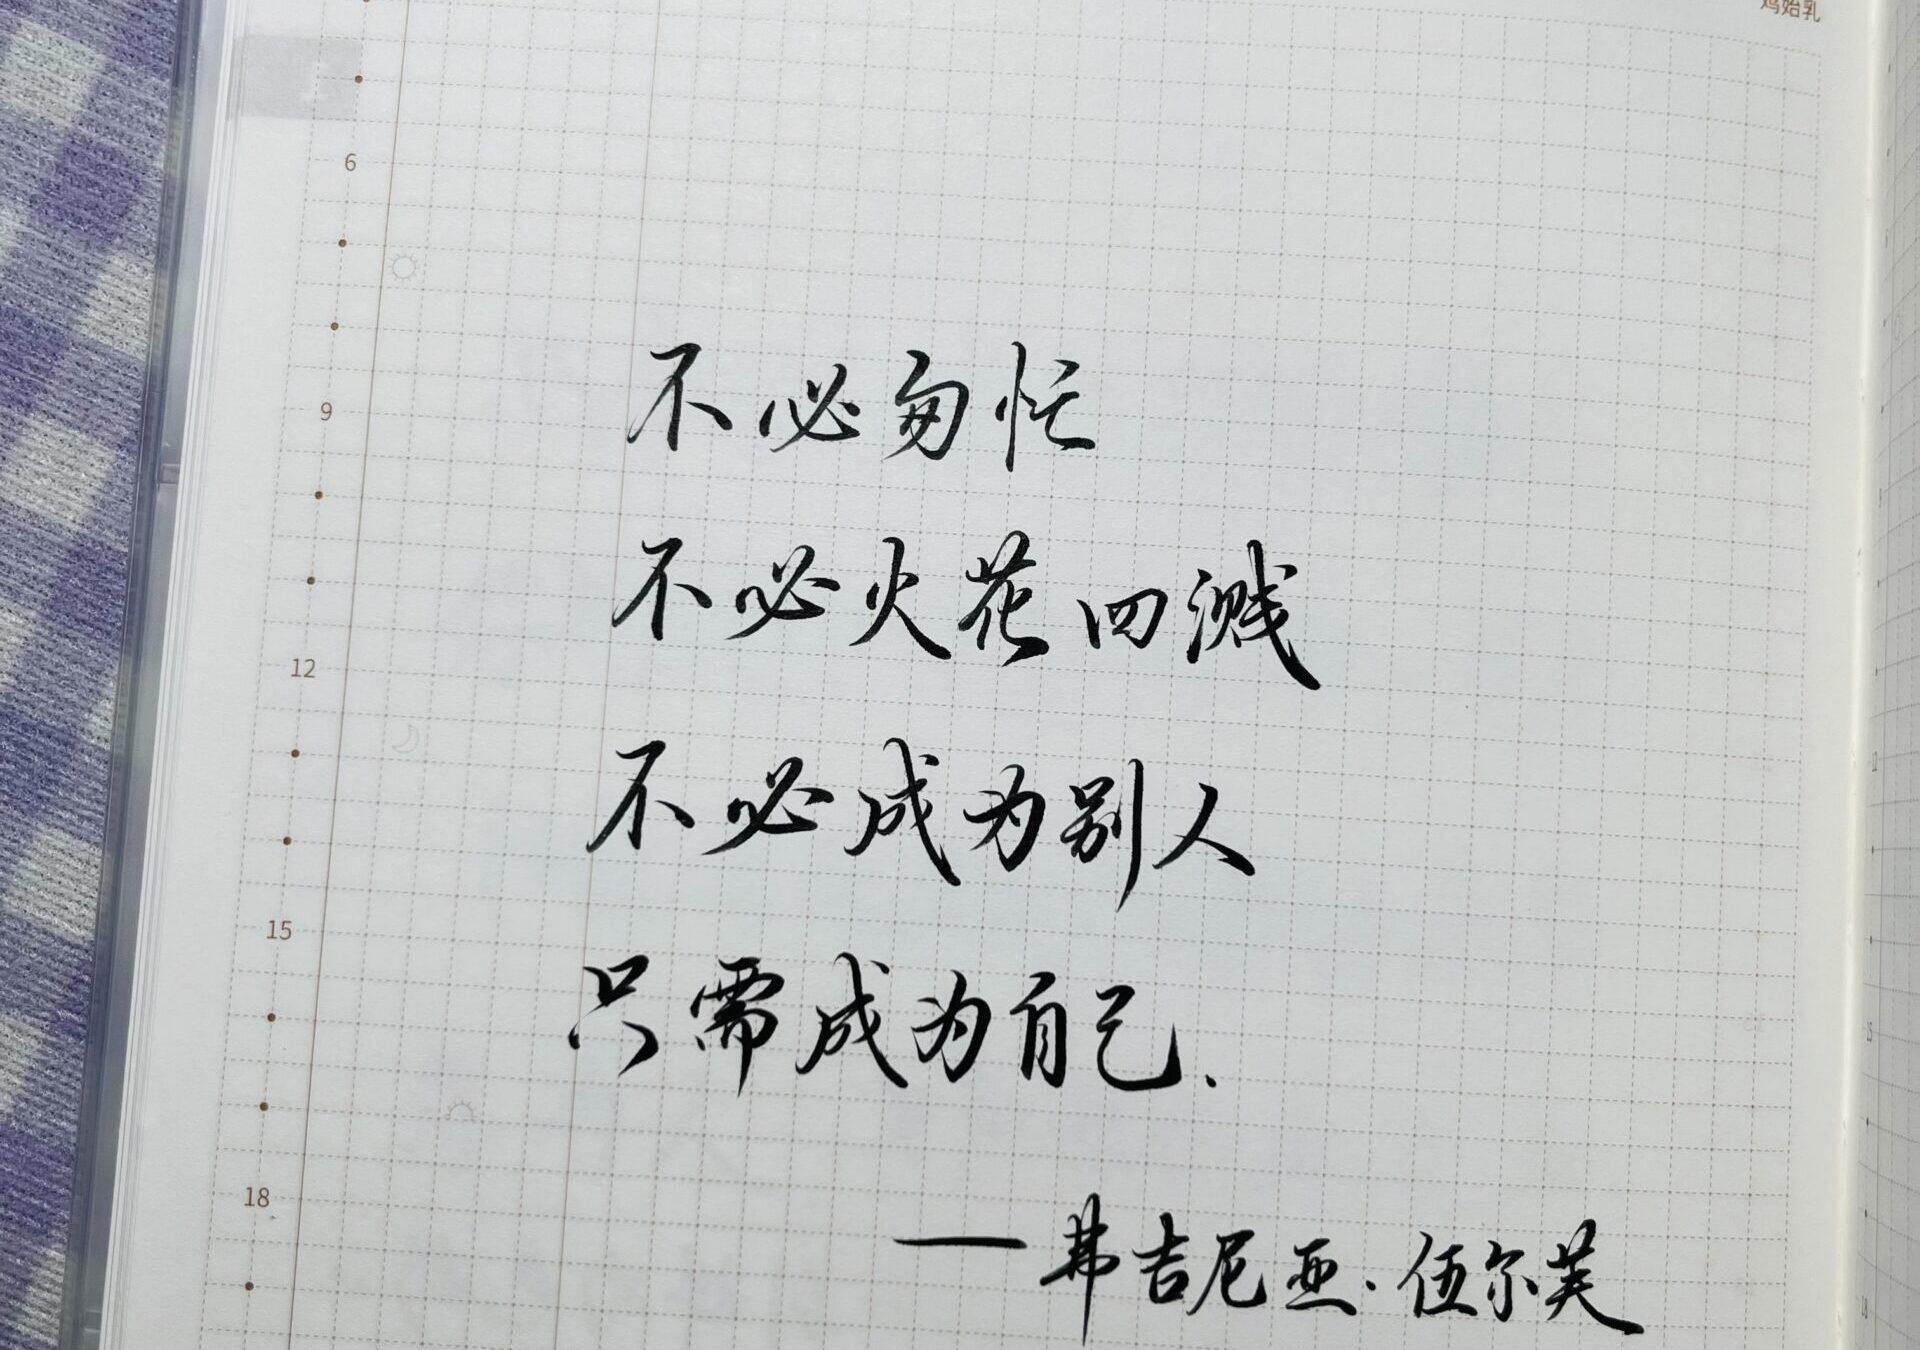 鸡始乳
6
9
不必匆忙
不必火花四溅
12
不必成为别人
15
只需成为自己.
18
——弗吉尼亚·伍尔芙